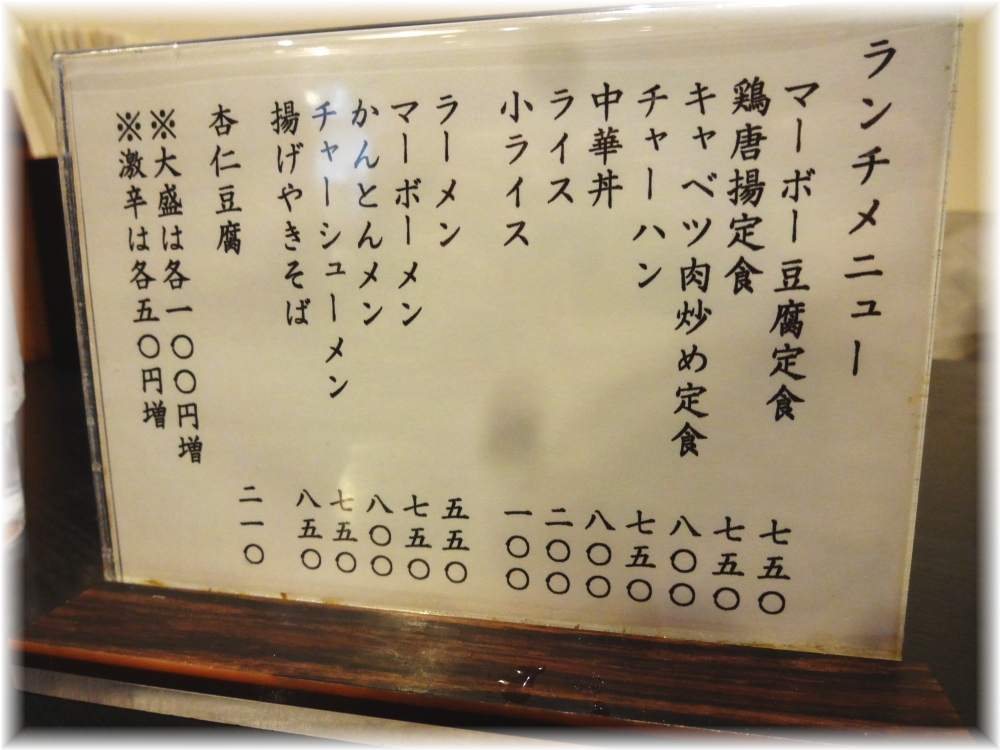 ランチメニュー
マーボー豆腐定食 七五〇
鶏唐揚定食 七五〇
キャベツ肉炒め定食 八〇〇
チャーハン 七五〇
中華丼 八〇〇
ライス 二〇〇
小ライス 一〇〇
ラーメン 五五〇
マーボーメン 七五〇
かんとんメン 八〇〇
チャーシューメン 七五〇
揚げやきそば 八五〇
杏仁豆腐 二一〇
※大盛は各一〇〇円増
※激辛は各五〇円増